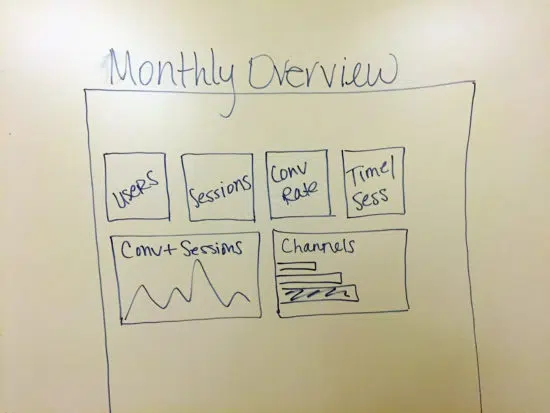 Monthly Overview
Users
Sessions
Conv
Rate
Time/
Sess
Conv + Sessions
Channels